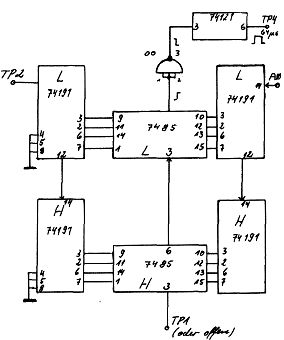 74121
3 6
TP4
64µs
00
3
1 2
TP2
L
74191
4
5
8
3
2
6
7
12
9
11
14
1
7485
L 3
10
12
13
15
3
2
6
7
L
74191
12
14
H
74191
4
5
8
3
2
6
7
9
11
14
1
6
7485
H
3
10
12
13
15
3
2
6
7
14
H
74191
TP1
(oder offen)